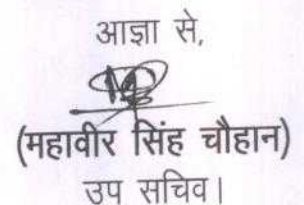 आज्ञा से,
(महावीर सिंह चौहान)
उप सचिव।